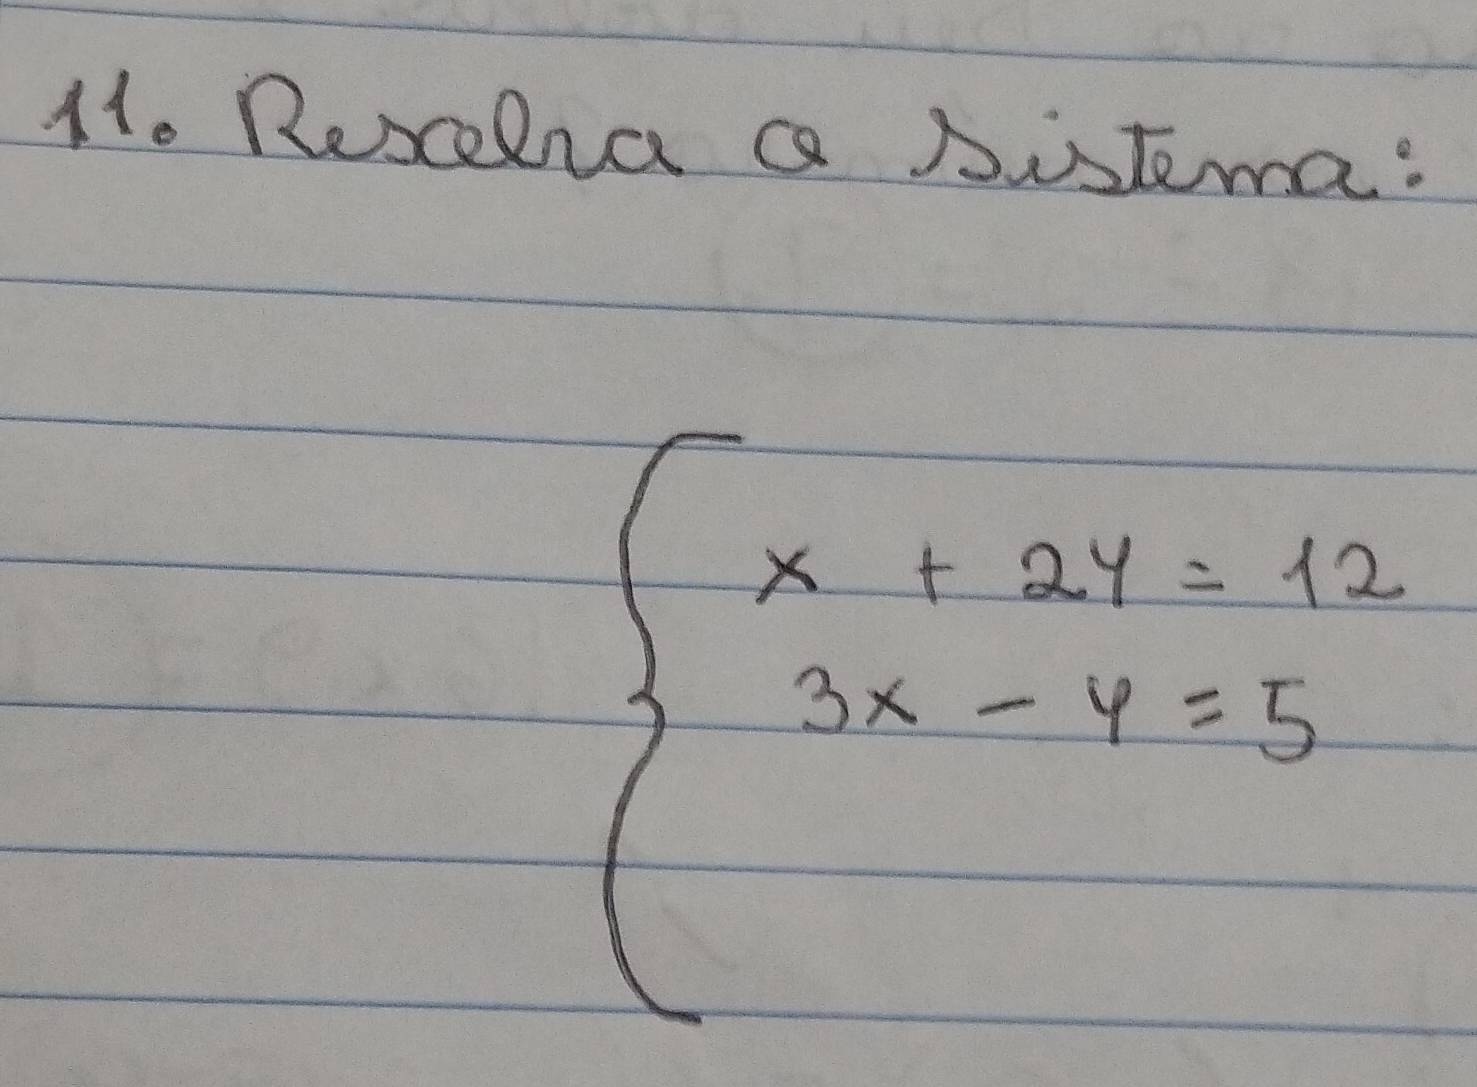 11. Resolva o sistema:
x + 2y = 12
3x - y = 5